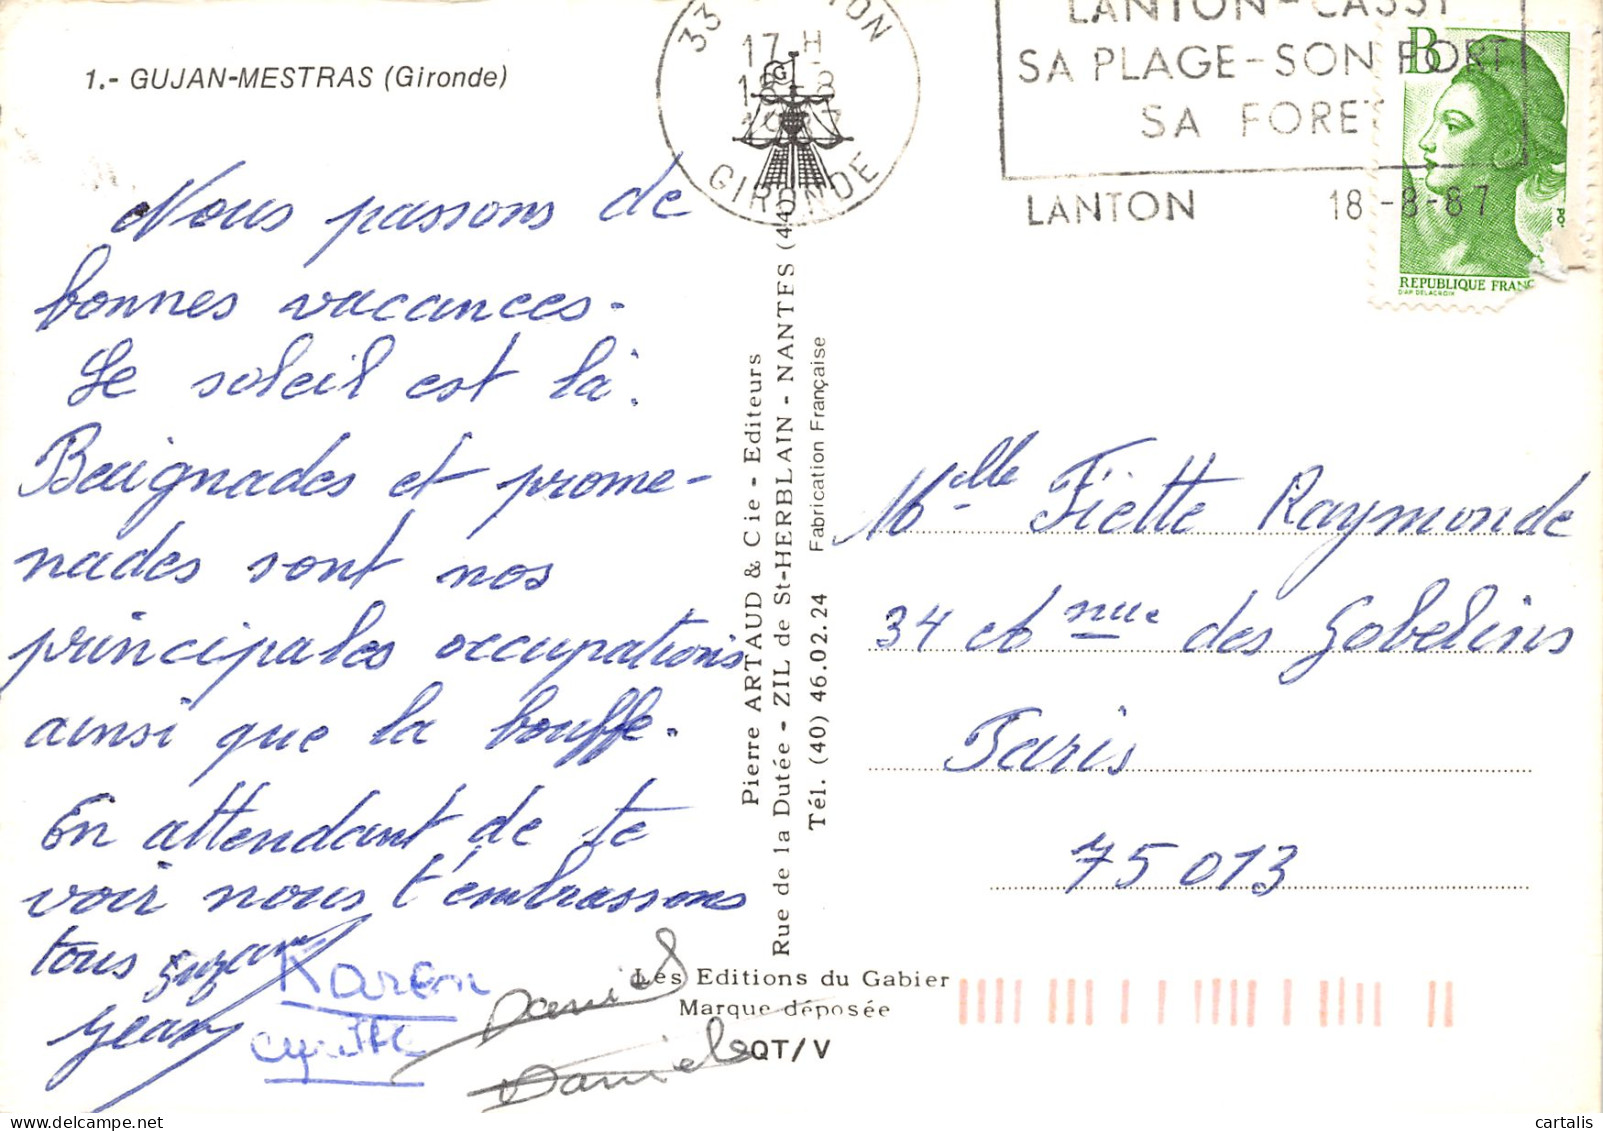 1.- GUJAN-MESTRAS (Gironde)
Nous passons de
bonnes vacances.
Le soleil est là.
Baignades et prome-
nades sont nos
principales occupations
ainsi que la bouffe.
En attendant de te
voir nous t'embrassons
tous Suzanne
Karen
Jean
Cyrille
Daniel
Daniele
Pierre ARTAUD & Cie - Editeurs
Rue de la Dutée - ZIL de St-HERBLAIN - NANTES (44)
Tél. (40) 46.02.24 Fabrication Française
Les Editions du Gabier
Marque déposée
QT/V
33 LANTON
17 H
18-8
1987
GIRONDE
LANTON-CASSY
SA PLAGE-SON PORT
SA FORET
LANTON 18-8-87
B
REPUBLIQUE FRANC
D'AP. DELACROIX
Melle Fiette Raymonde
34 av nue des Gobelins
Paris
75013
cartalis